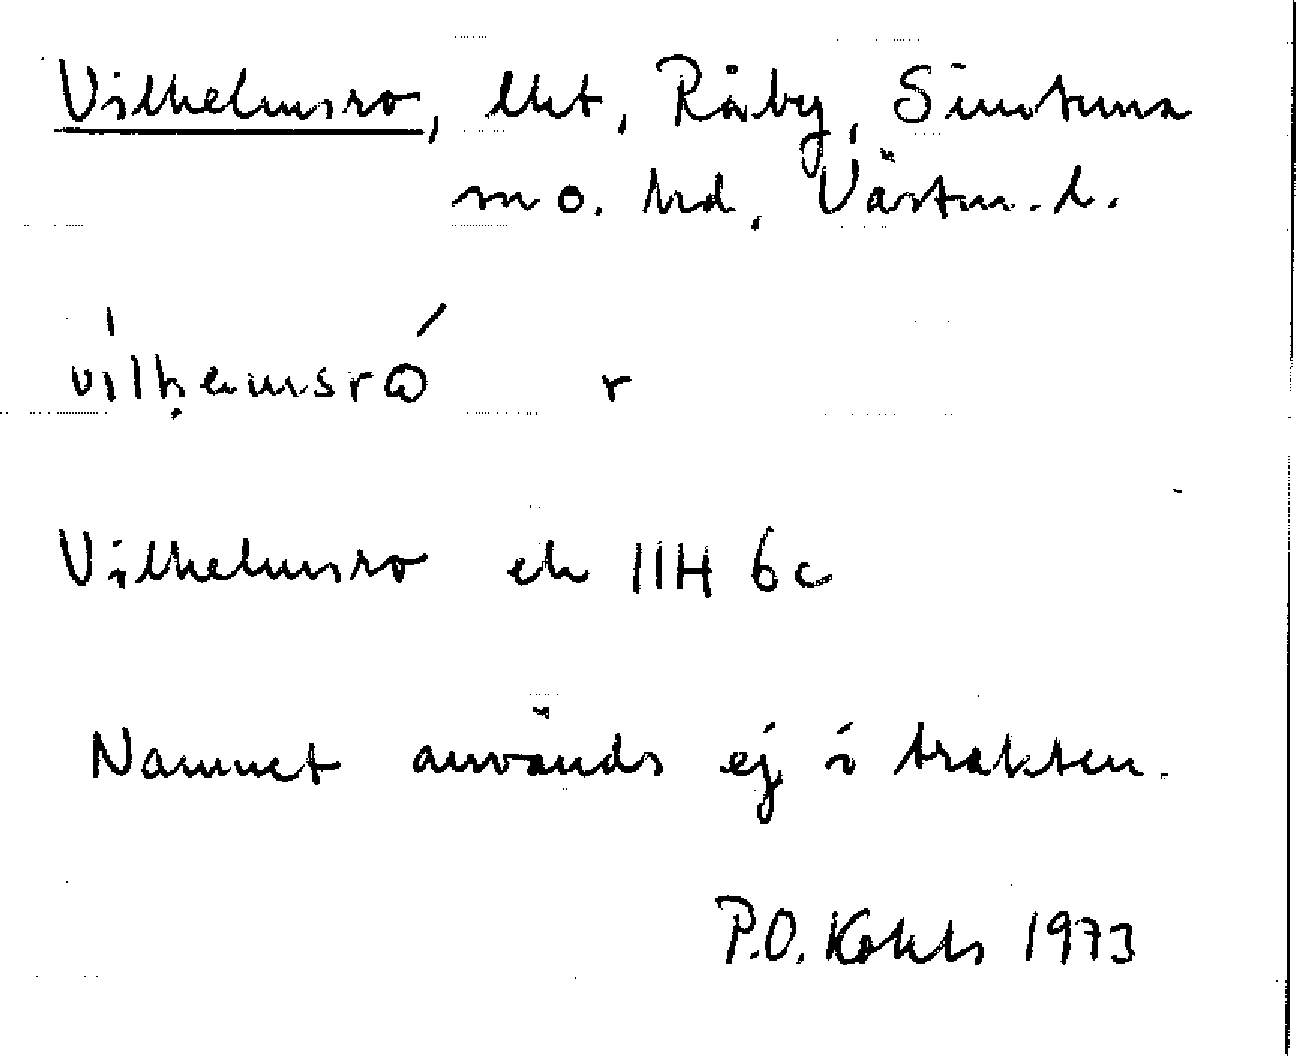 Vilhelmsro, lht, Råby, Simtuna
m o. hd, Västm. l.
vilhemsrω r
Vilhelmsro ek 11H 6c
Namnet används ej i trakten.
P.O. 1973